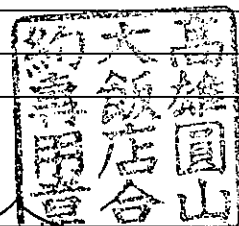 高雄圓山
大飯店合
約專用章